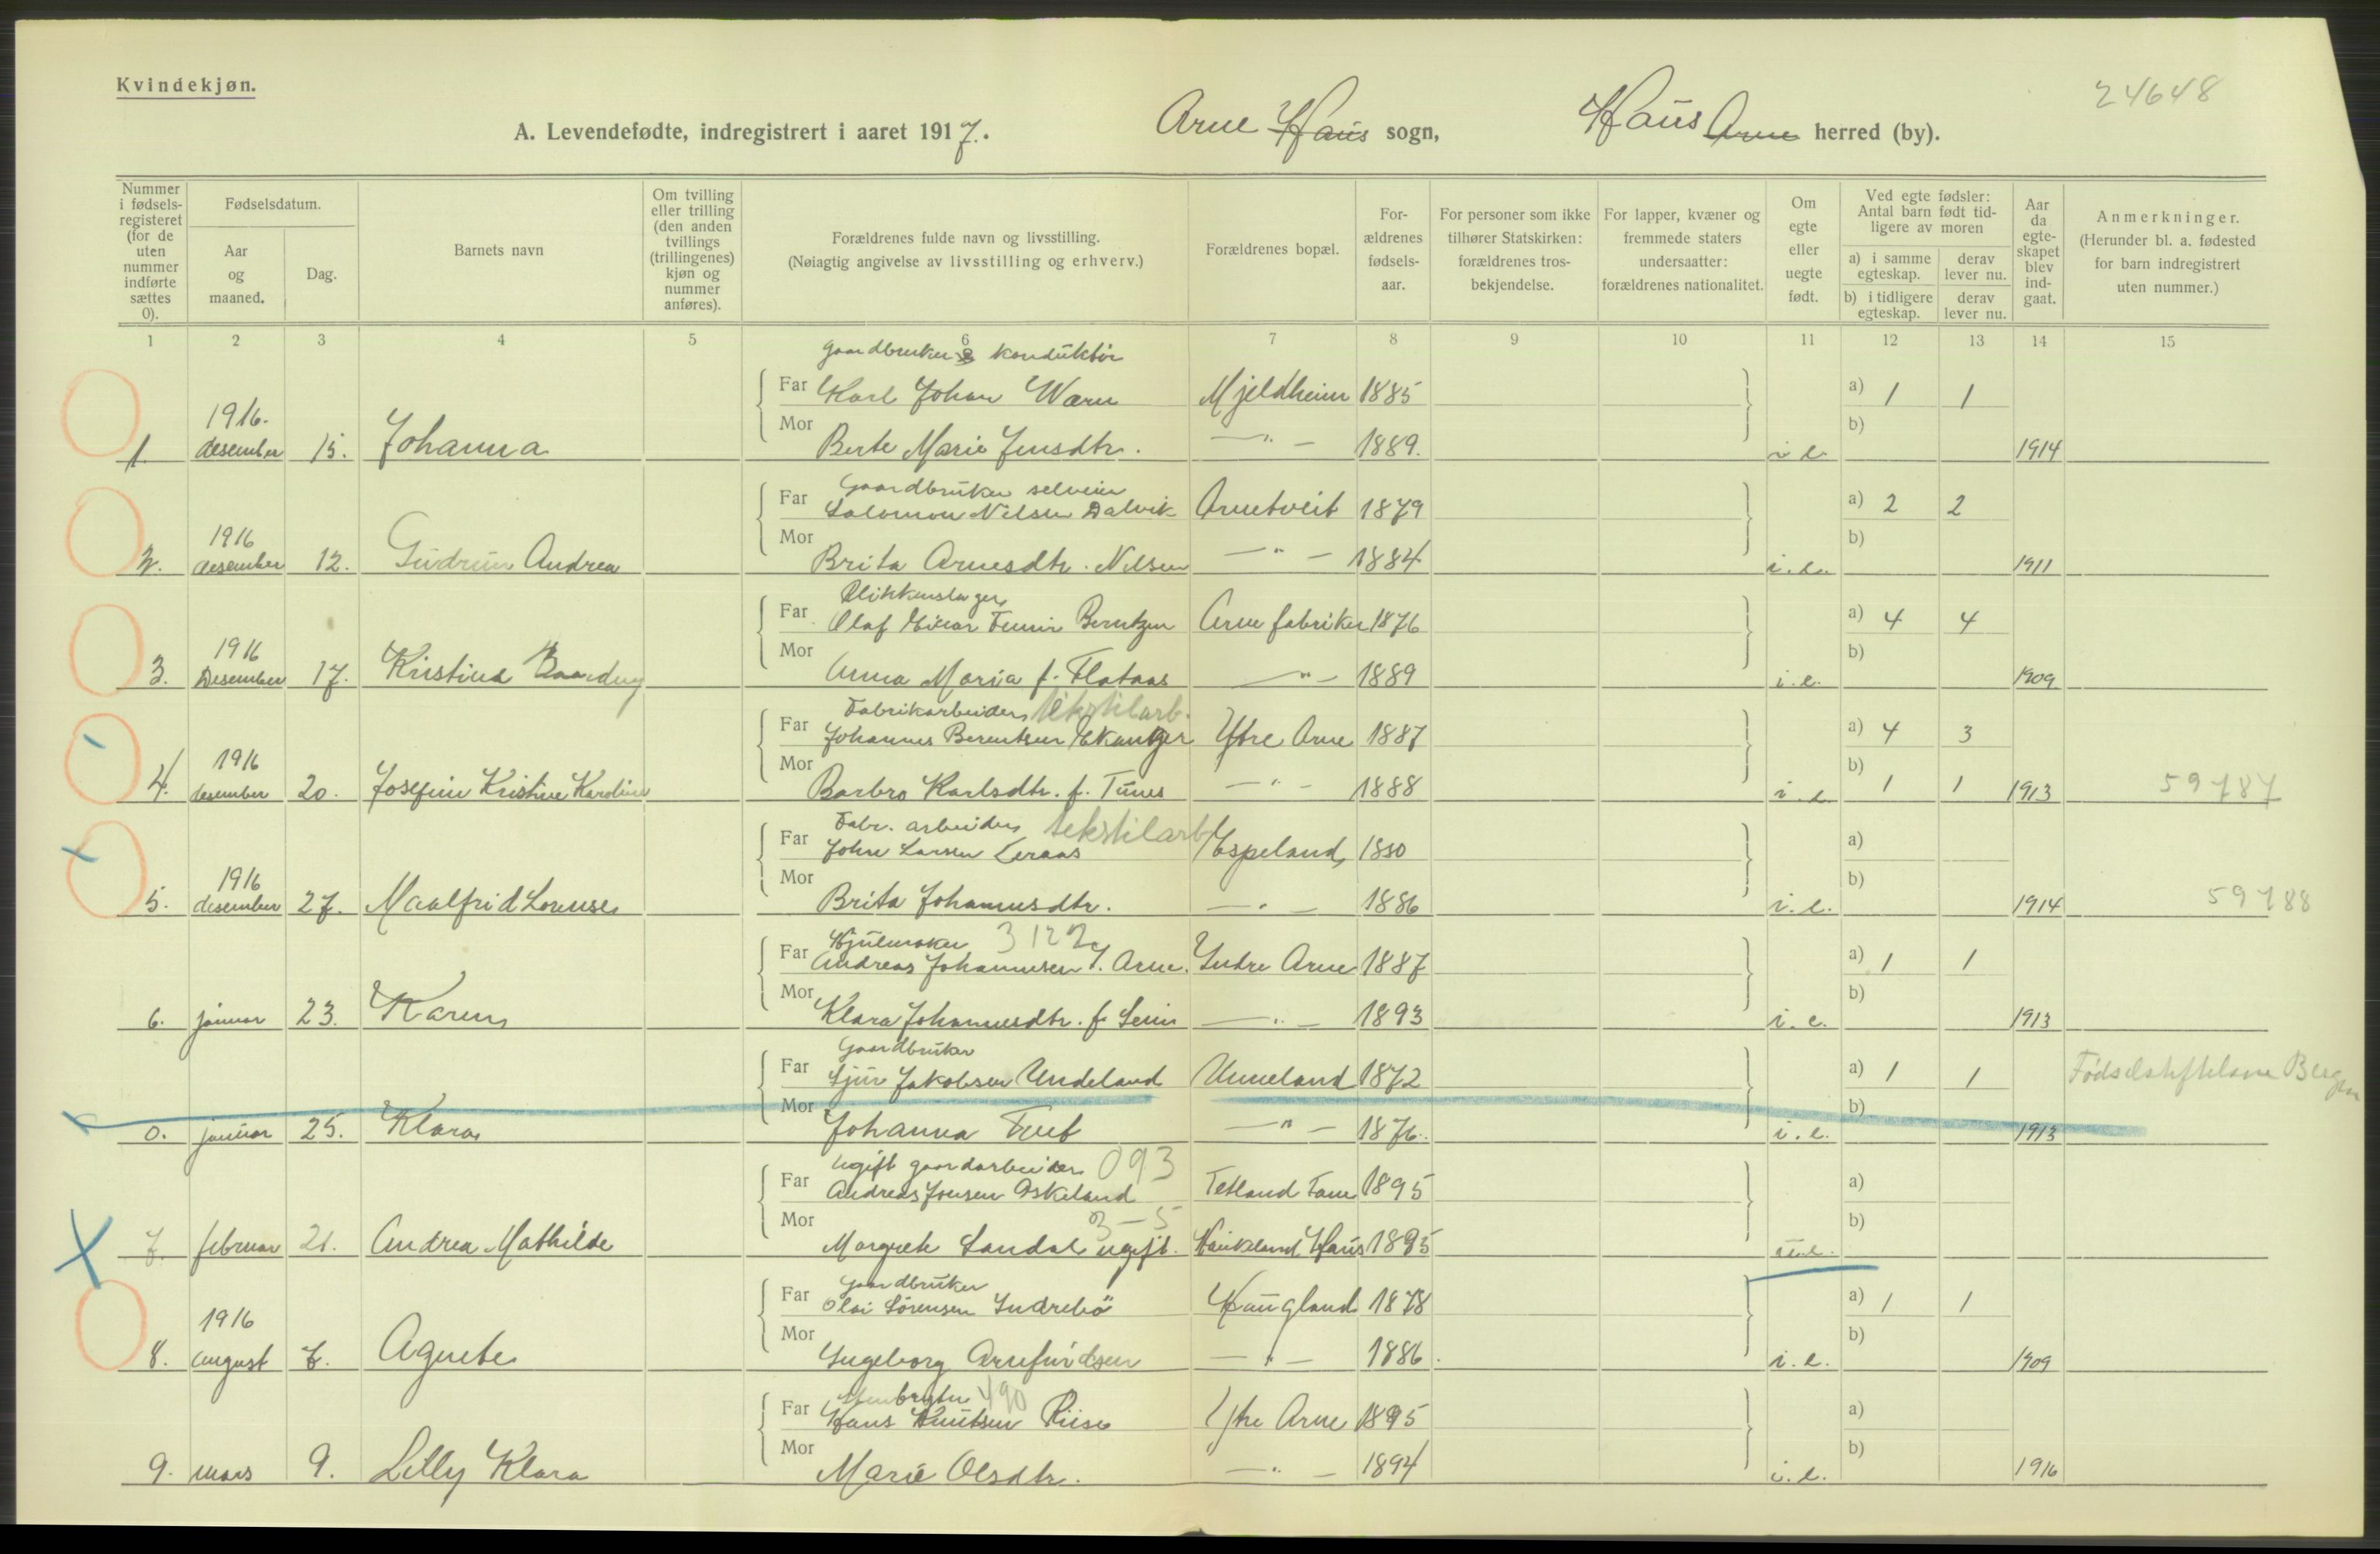 Kvindekjøn.
24648
A. Levendefødte, indregistrert i aaret 1917.
Arne Haus sogn,
Haus Arne herred (by).
Nummer i fødselsregisteret (for de uten nummer indførte sættes 0).
Fødselsdatum.
Aar og maaned.
Dag.
Barnets navn
Om tvilling eller trilling (den anden tvillings (trillingenes) kjøn og nummer anføres).
Forældrenes fulde navn og livsstilling.
(Nøiagtig angivelse av livsstilling og erhverv.)
Forældrenes bopæl.
Forældrenes fødselsaar.
For personer som ikke tilhører Statskirken: forældrenes trosbekjendelse.
For lapper, kvæner og fremmede staters undersaatter: forældrenes nationalitet.
Om egte eller uegte født.
Ved egte fødsler: Antal barn født tidligere av moren
a) i samme egteskap.
derav lever nu.
b) i tidligere egteskap.
derav lever nu.
Aar da egteskapet blev indgaat.
Anmerkninger.
(Herunder bl. a. fødested for barn indregistrert uten nummer.)
1 2 3 4 5 6 7 8 9 10 11 12 13 14 15
gaardbruker & konduktør
Far Karl Johan Warn Mjeldheim 1885 a) 1 1
1. 1916. desember 15. Johanna
Mor Berte Marie Jensdtr. —"— 1889. i e. b) 1914
Gaardbruker selveier
Far Salomon Nilsen Dalvik Arnetveit 1879 a) 2 2
2. 1916 desember 12. Gudrun Andrea
Mor Brita Arnesdtr. Nilsen —"— 1884 i.e. b) 1911
Blikkenslager
Far Olaf Einar Berntzen Arne fabriker 1876 a) 4 4
3. 1916 Desember 17. Kristine
Mor Anna Maria f. Flataas —"— 1889 i.e. b) 1909
Fabrikarbeider tekstilarb.
Far Johannes Berentsen Ytre Arne 1887 a) 4 3
4. 1916 desember 20. Josefine Kristine Karoline
Mor Barbro Karlsdtr. f. Tunes —"— 1888 i.e. b) 1 1 1913 59787
Fabr. arbeider tekstilarb
Far Johan Larsen Leraas Espeland 1880 a)
5. 1916 desember 27. Maalfrid Lorense
Mor Brita Johannesdtr. —"— 1886 i.e. b) 1914 59788
Hjulmaker 3122
Far Andreas Johannesen I. Arne. Indre Arne 1887 a) 1 1
6. januar 23. Karen
Mor Klara Johannesdtr. f. —"— 1893 i.e. b) 1913
Gaardbruker
Far Sjur Jakobsen Undeland Unneland 1872 a) 1 1 Fødselsstiftelsen Bergen
0. januar 25. Klara
Mor Johanna —"— 1876. i.e. b) 1913
Ugift gaardarbeider 093
Far Andreas Jonsen Askeland Tetland 1895 a)
3-5
7. februar 21. Andrea Mathilde
Mor Margrete Sandal ugift. Haukeland Haus 1895 u.e. b)
Gaardbruker
Far Olai Sørensen Indrebø Haugland 1878 a) 1 1
8. 1916 august 7. Agnete
Mor Ingeborg Arnfindsen —"— 1886. i.e. b) 1909
490
Far Hans Knutsen Riise Ytre Arne 1895 a)
9. mars 9. Lilly Klara
Mor Marie Olsdtr. —"— 1894 i.e. b) 1916